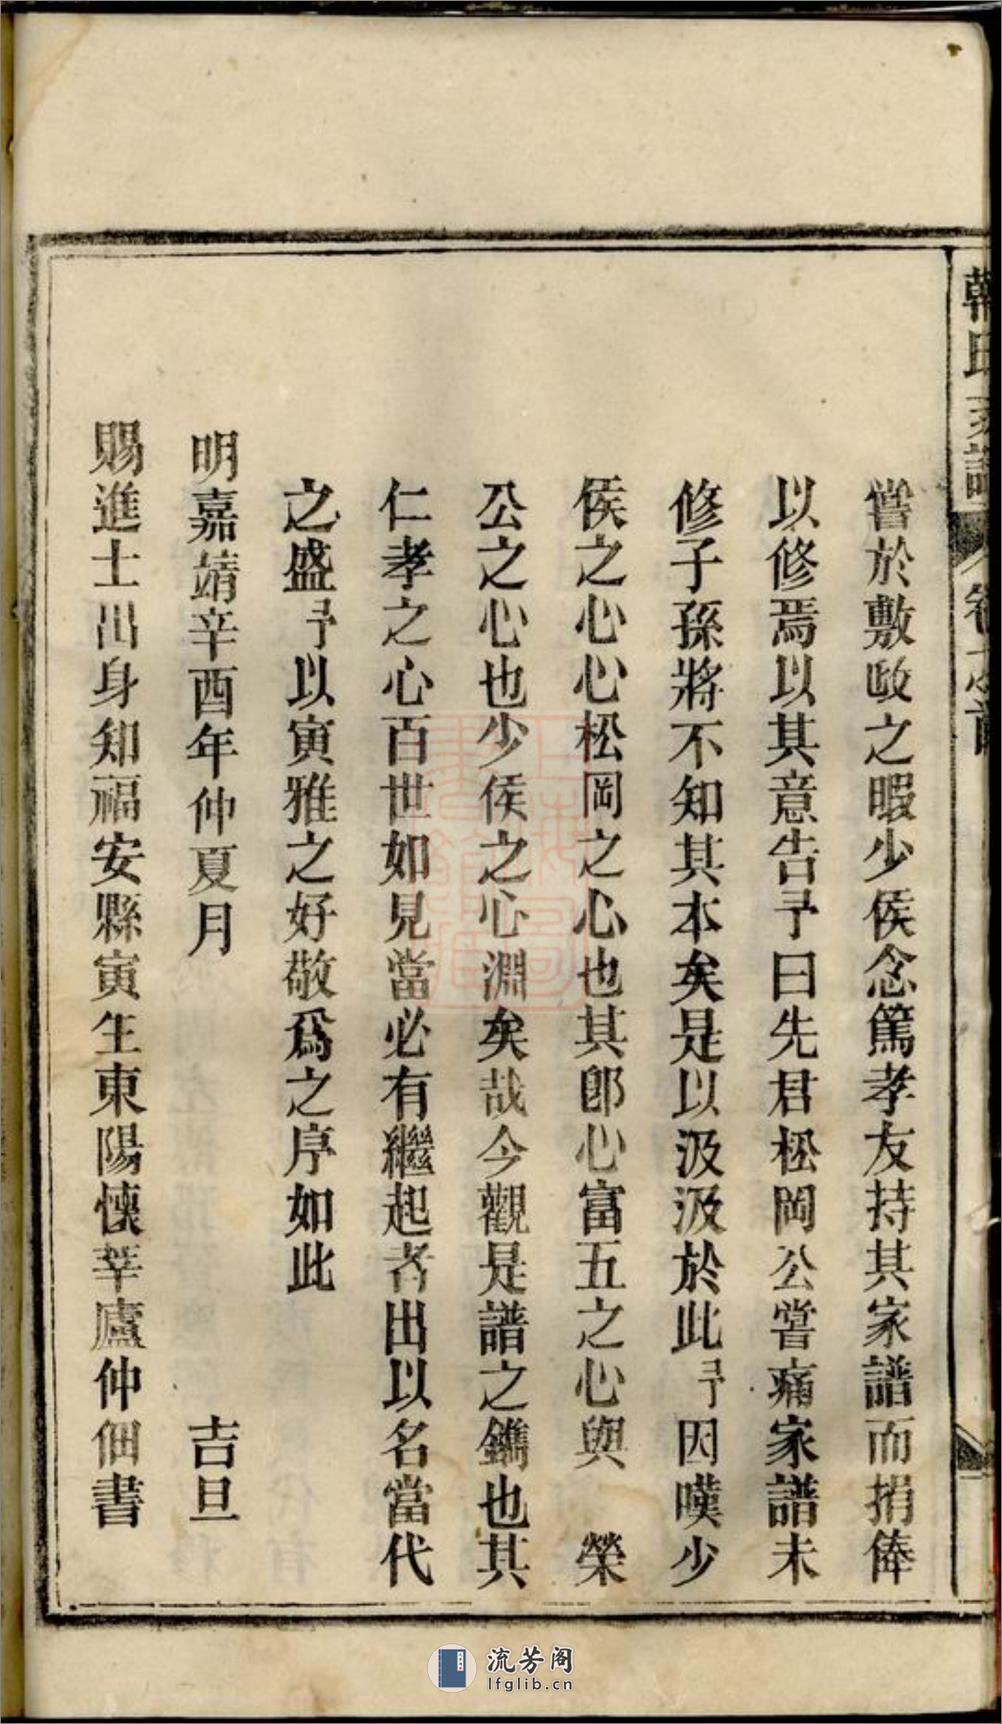 韓氏支譜 卷之首
嘗於敷政之暇少侯念篤孝友持其家譜而捐俸
以修焉以其意告予曰先君松岡公嘗痛家譜未
修子孫將不知其本矣是以汲汲於此予因嘆少
侯之心心松岡之心也其卽心富五之心與 榮
公之心也少侯之心淵矣哉今觀是譜之鐫也其
仁孝之心百世如見當必有繼起者出以名當代
之盛予以寅雅之好敬爲之序如此
明嘉靖辛酉年仲夏月 吉旦
賜進士出身知福安縣寅生東陽懷莘廬仲佃書
流芳阁
lfglib.cn